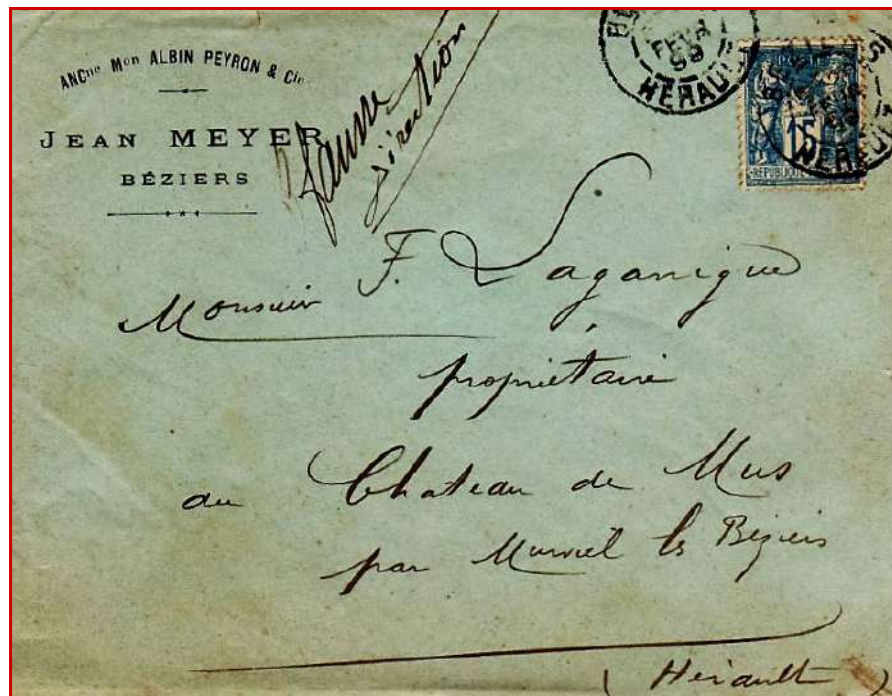 ANCne Mon ALBIN PEYRON & Cie
JEAN MEYER
BÉZIERS
fausse
direction
FEVR
HÉRAULT
15
RÉPUBLIQUE
HÉRAULT
Monsieur F. Laganigue
propriétaire
au Chateau de Mus
par Murviel les Béziers
(Hérault)